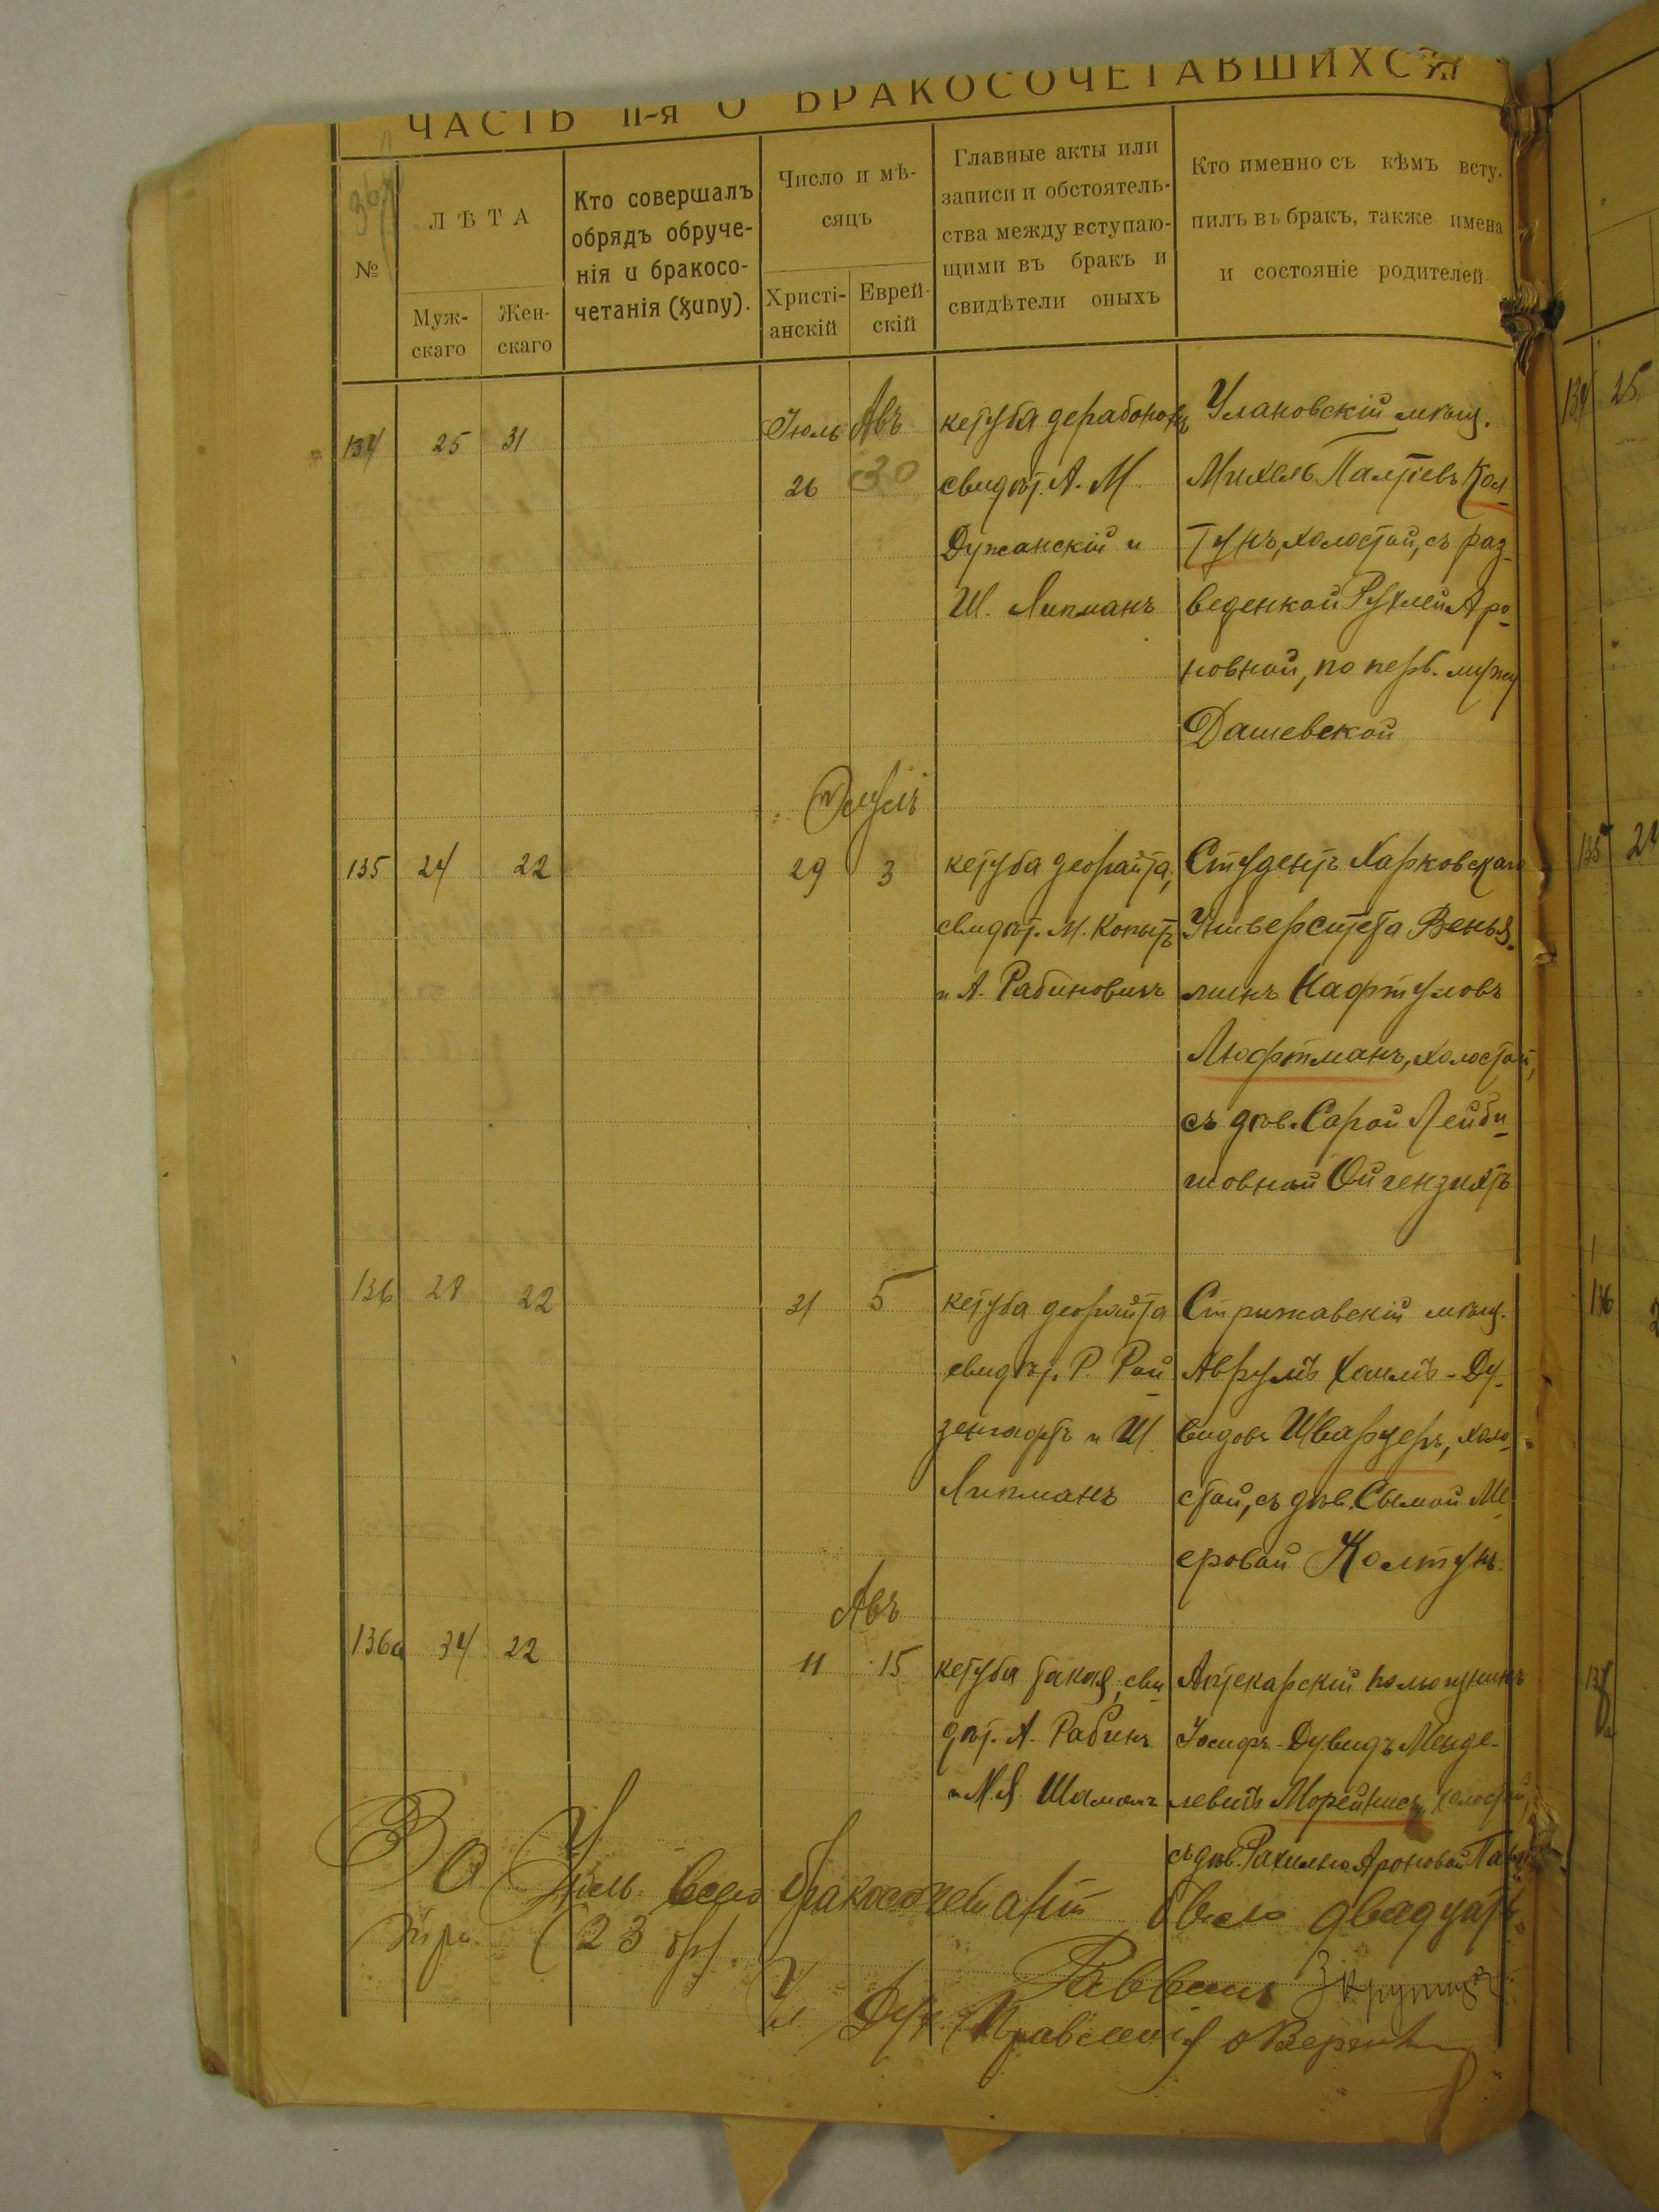 ЧАСТЬ II-я О БРАКОСОЧЕТАВШИХСЯ
№
ЛѢТА
Муж-
скаго
Жен-
скаго
Кто совершалъ
обрядъ обруче-
нія и бракосо-
четанія (хупу).
Число и мѣ-
сяцъ
Христі-
анскій
Еврей-
скій
Главные акты или
записи и обстоятель-
ства между вступаю-
щими въ бракъ и
свидѣтели оныхъ
Кто именно съ кѣмъ всту-
пилъ въ бракъ, также имена
и состояніе родителей
134 25 31
Іюль Авъ
26 30
кетуба дерабононъ
свидѣт. А. М.
Дужанскій и
Ш. Липманъ
Улановскій мѣщ.
Михель Палтіевъ Кол-
тунъ, холостой, съ раз-
веденкой Рухлей Аро-
новной, по перв. мужу
Дашевской
Элулъ
135 24 22
29 3
кетуба деорайта,
свидѣт. М. Копытъ
и А. Рабиновичъ
Студентъ Харковскаго
Университета Венья-
минъ Нафтуловъ
Люфтманъ, холостой,
съ дѣв. Сарой Лейби-
шовной Ойгензихтъ
136 28 22
31 5
кетуба деорайта
свидѣт. Р. Рой-
зенгафтъ и Ш.
Липманъ
Стрижавскій мѣщ.
Аврумъ Хаимъ-Ду-
видовъ Шварцеръ, холо-
стой, съ дѣв. Сымой Ме-
еровой Колтунъ.
Авъ
136а 34 22
11 15
кетуба такая, сви-
дѣт. А. Рабинъ
и М. Я. Шамомъ
Аптекарскій помощникъ
Іосифъ-Дувидъ Менде-
левичъ Морейнисъ, холостой,
съ дѣв. Рахилью Ароновой
Во Іюль всего бракосочетаній было двадцать
три (23 бр).
Раввинъ